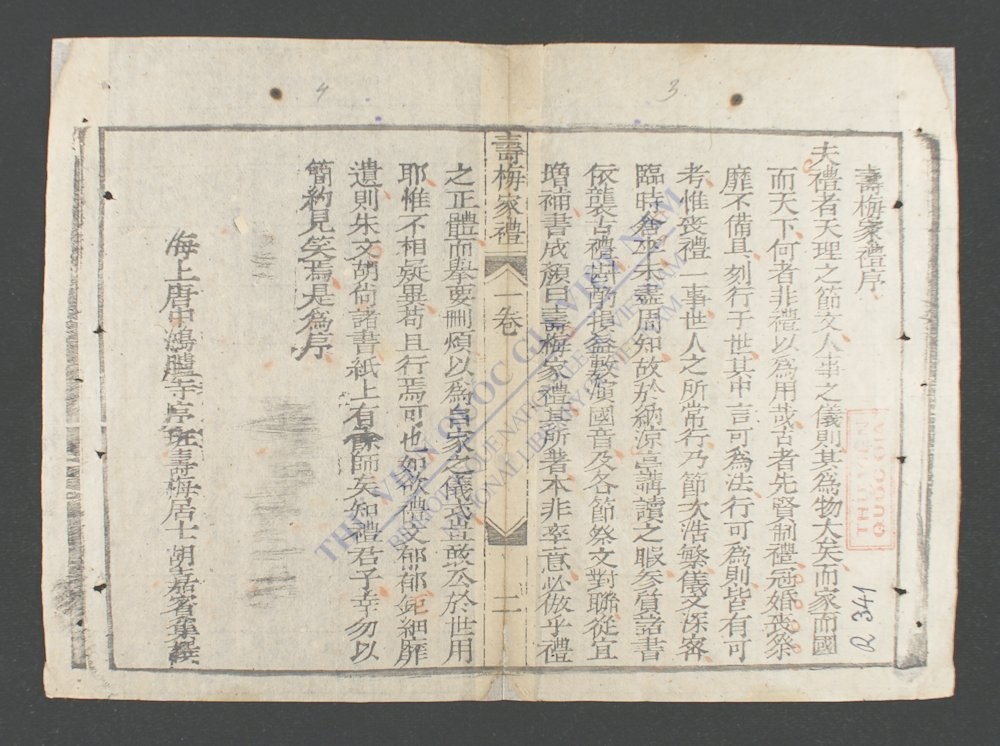 壽梅家禮序
夫禮者天理之節文人事之儀則其為物大矣而家而國
而天下何者非禮以為用哉古者先賢制禮冠婚喪祭
靡不備具刻行于世其中言可為法行可為則皆有可
考惟喪禮一事世人之所常行乃節次浩繁儀文深密
臨時倉卒未盡周知故於納涼亭講讀之暇參質諸書
依襲古禮斟酌損益敷演國音及各節祭文對聯從宜
增補書成顏曰壽梅家禮其所著本非率意必倣乎禮
壽梅家禮 一卷 二
之正體而擧要刪煩以為自家之儀式豈敢公於世用
耶惟不相疑異苟且行焉可也如欲禮文郁郁鉅細靡
遺則朱文胡尙諸書紙上有餘師矣知禮君子幸勿以
簡約見笑焉是為序
海上唐中鴻臚寺序班壽梅居士胡嘉賓集撰
4
3
R 341
THƯ VIỆN QUỐC GIA VIỆT NAM
BIBLIOTHEQUE NATIONALE DU VIETNAM
NATIONAL LIBRARY OF VIETNAM